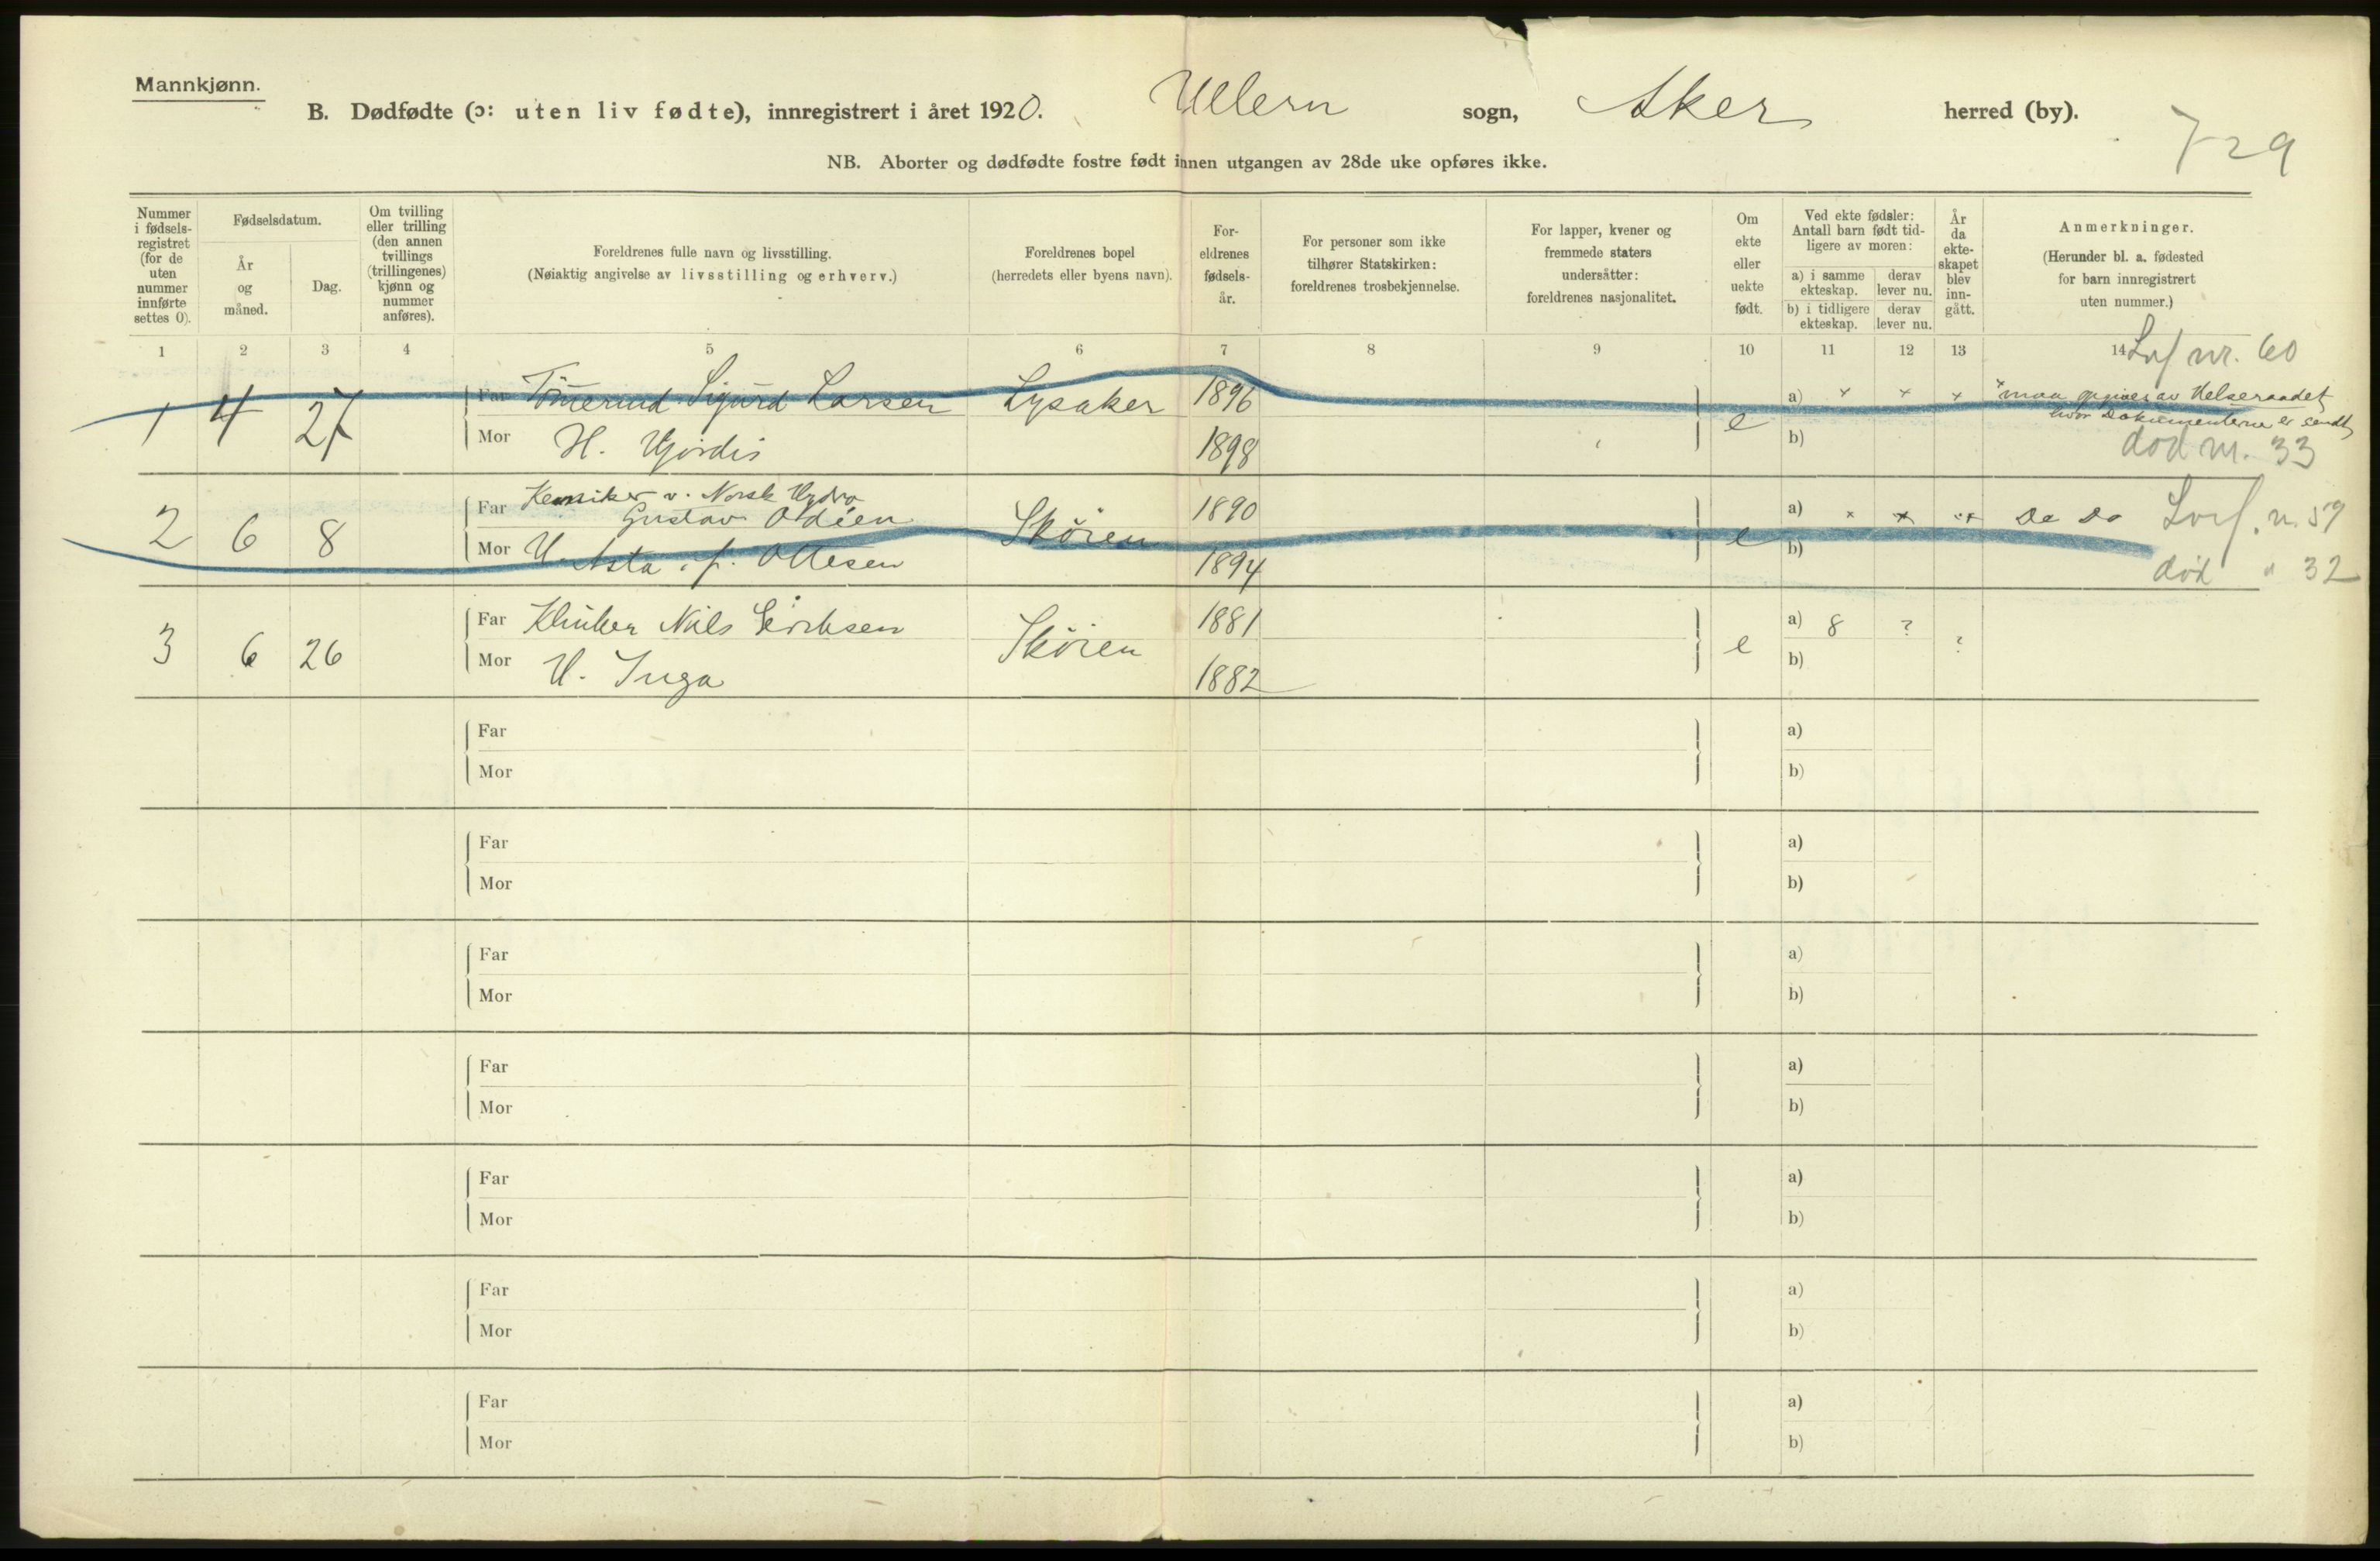 Mannkjønn.
B. Dødfødte (ɔ: uten liv fødte), innregistrert i året 1920. Ullern sogn, Aker herred (by).
729
NB. Aborter og dødfødte fostre født innen utgangen av 28de uke opføres ikke.
Nummer i fødsels-registret (for de uten nummer innførte settes 0).
Fødselsdatum.
År og måned.
Dag.
Om tvilling eller trilling (den annen tvillings (trillingenes) kjønn og nummer anføres).
Foreldrenes fulle navn og livsstilling.
(Nøiaktig angivelse av livsstilling og erhverv.)
Foreldrenes bopel
(herredets eller byens navn).
For-eldrenes fødsels-år.
For personer som ikke tilhører Statskirken: foreldrenes trosbekjennelse.
For lapper, kvener og fremmede staters undersåtter: foreldrenes nasjonalitet.
Om ekte eller uekte født.
Ved ekte fødsler: Antall barn født tid-ligere av moren:
a) i samme ekteskap. derav lever nu.
b) i tidligere ekteskap. derav lever nu.
År da ekte-skapet blev inn-gått.
Anmerkninger.
(Herunder bl. a. fødested for barn innregistrert uten nummer.)
1 2 3 4 5 6 7 8 9 10 11 12 13 14
nr. 60
1 4 27 Far Sigurd Larsen Lysaker 1896 e a) × × × maa opgives av Helseraadet
hvor Dokumenterne er sendt
Mor H. Hjördis 1898 b)
død nr. 33
Kemiker v. Norsk Hydro
2 6 8 Far Gustav Skøien 1890 e a) × × × Do Do n. 59
Mor H. Asta f. Ottesen 1894 b)
død " 32
3 6 26 Far Nils Eriksen Skøien 1881 e a) 8 ? ?
Mor H. Inga 1882 b)
Far a)
Mor b)
Far a)
Mor b)
Far a)
Mor b)
Far a)
Mor b)
Far a)
Mor b)
Far a)
Mor b)
Far a)
Mor b)